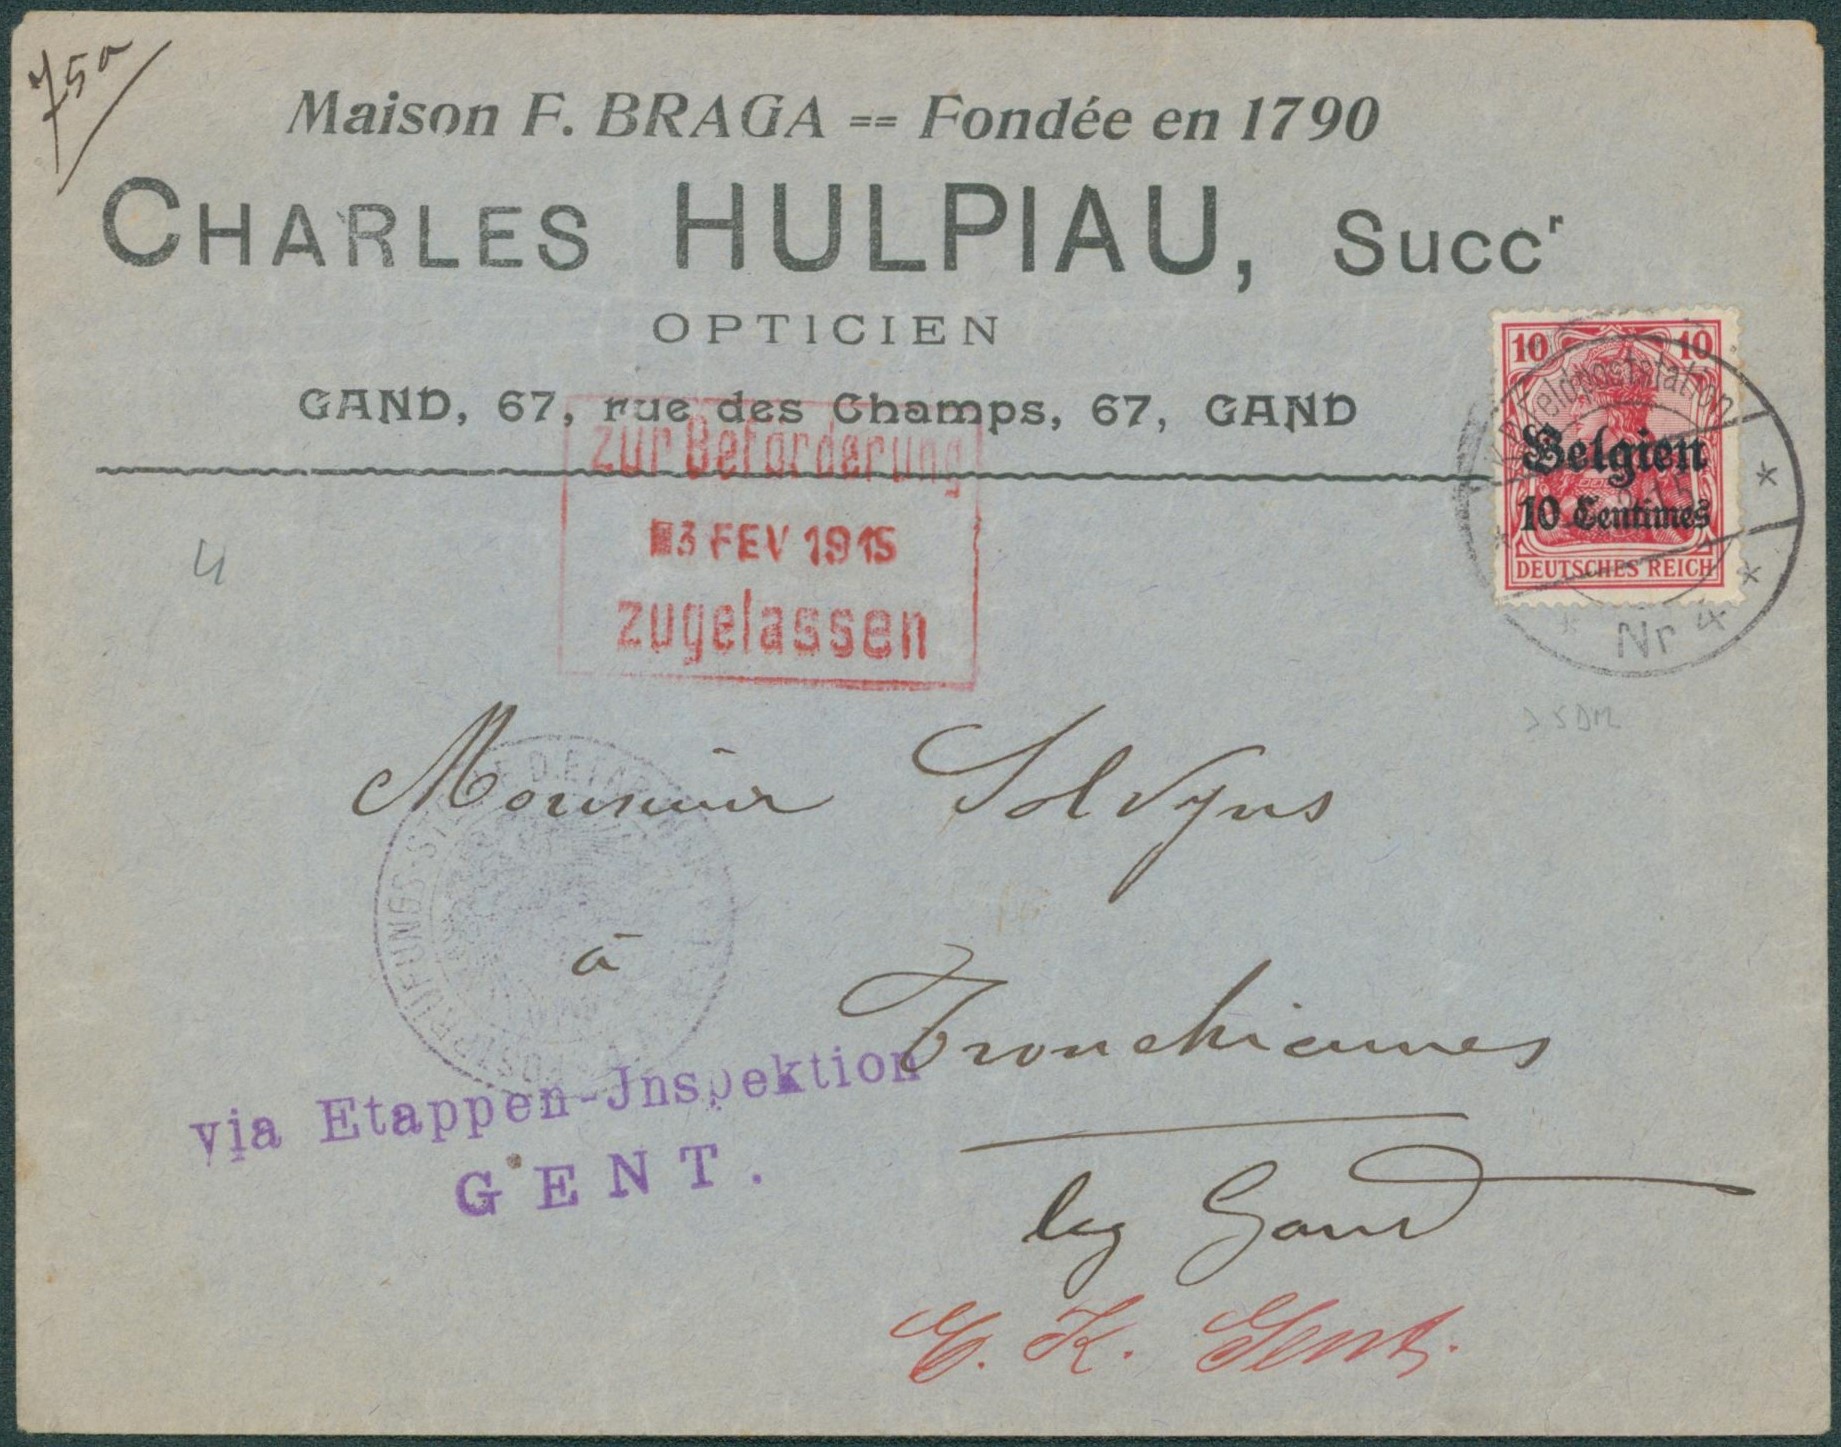 750
Maison F. BRAGA == Fondée en 1790
CHARLES HULPIAU, Succʳ
OPTICIEN
GAND, 67, rue des Champs, 67, GAND
10 10
Belgien
10 Centimes
DEUTSCHES REICH
Feldpoststation
Nr 4
zur Beförderung
3 FEV 1915
zugelassen
4
Monsieur Solvyns
à
Tronchiennes
lez Gand
POSTPRÜFUNGS-STELLE D. ETAPPEN
via Etappen-Jnspektion
GENT.
E. K. Gent.